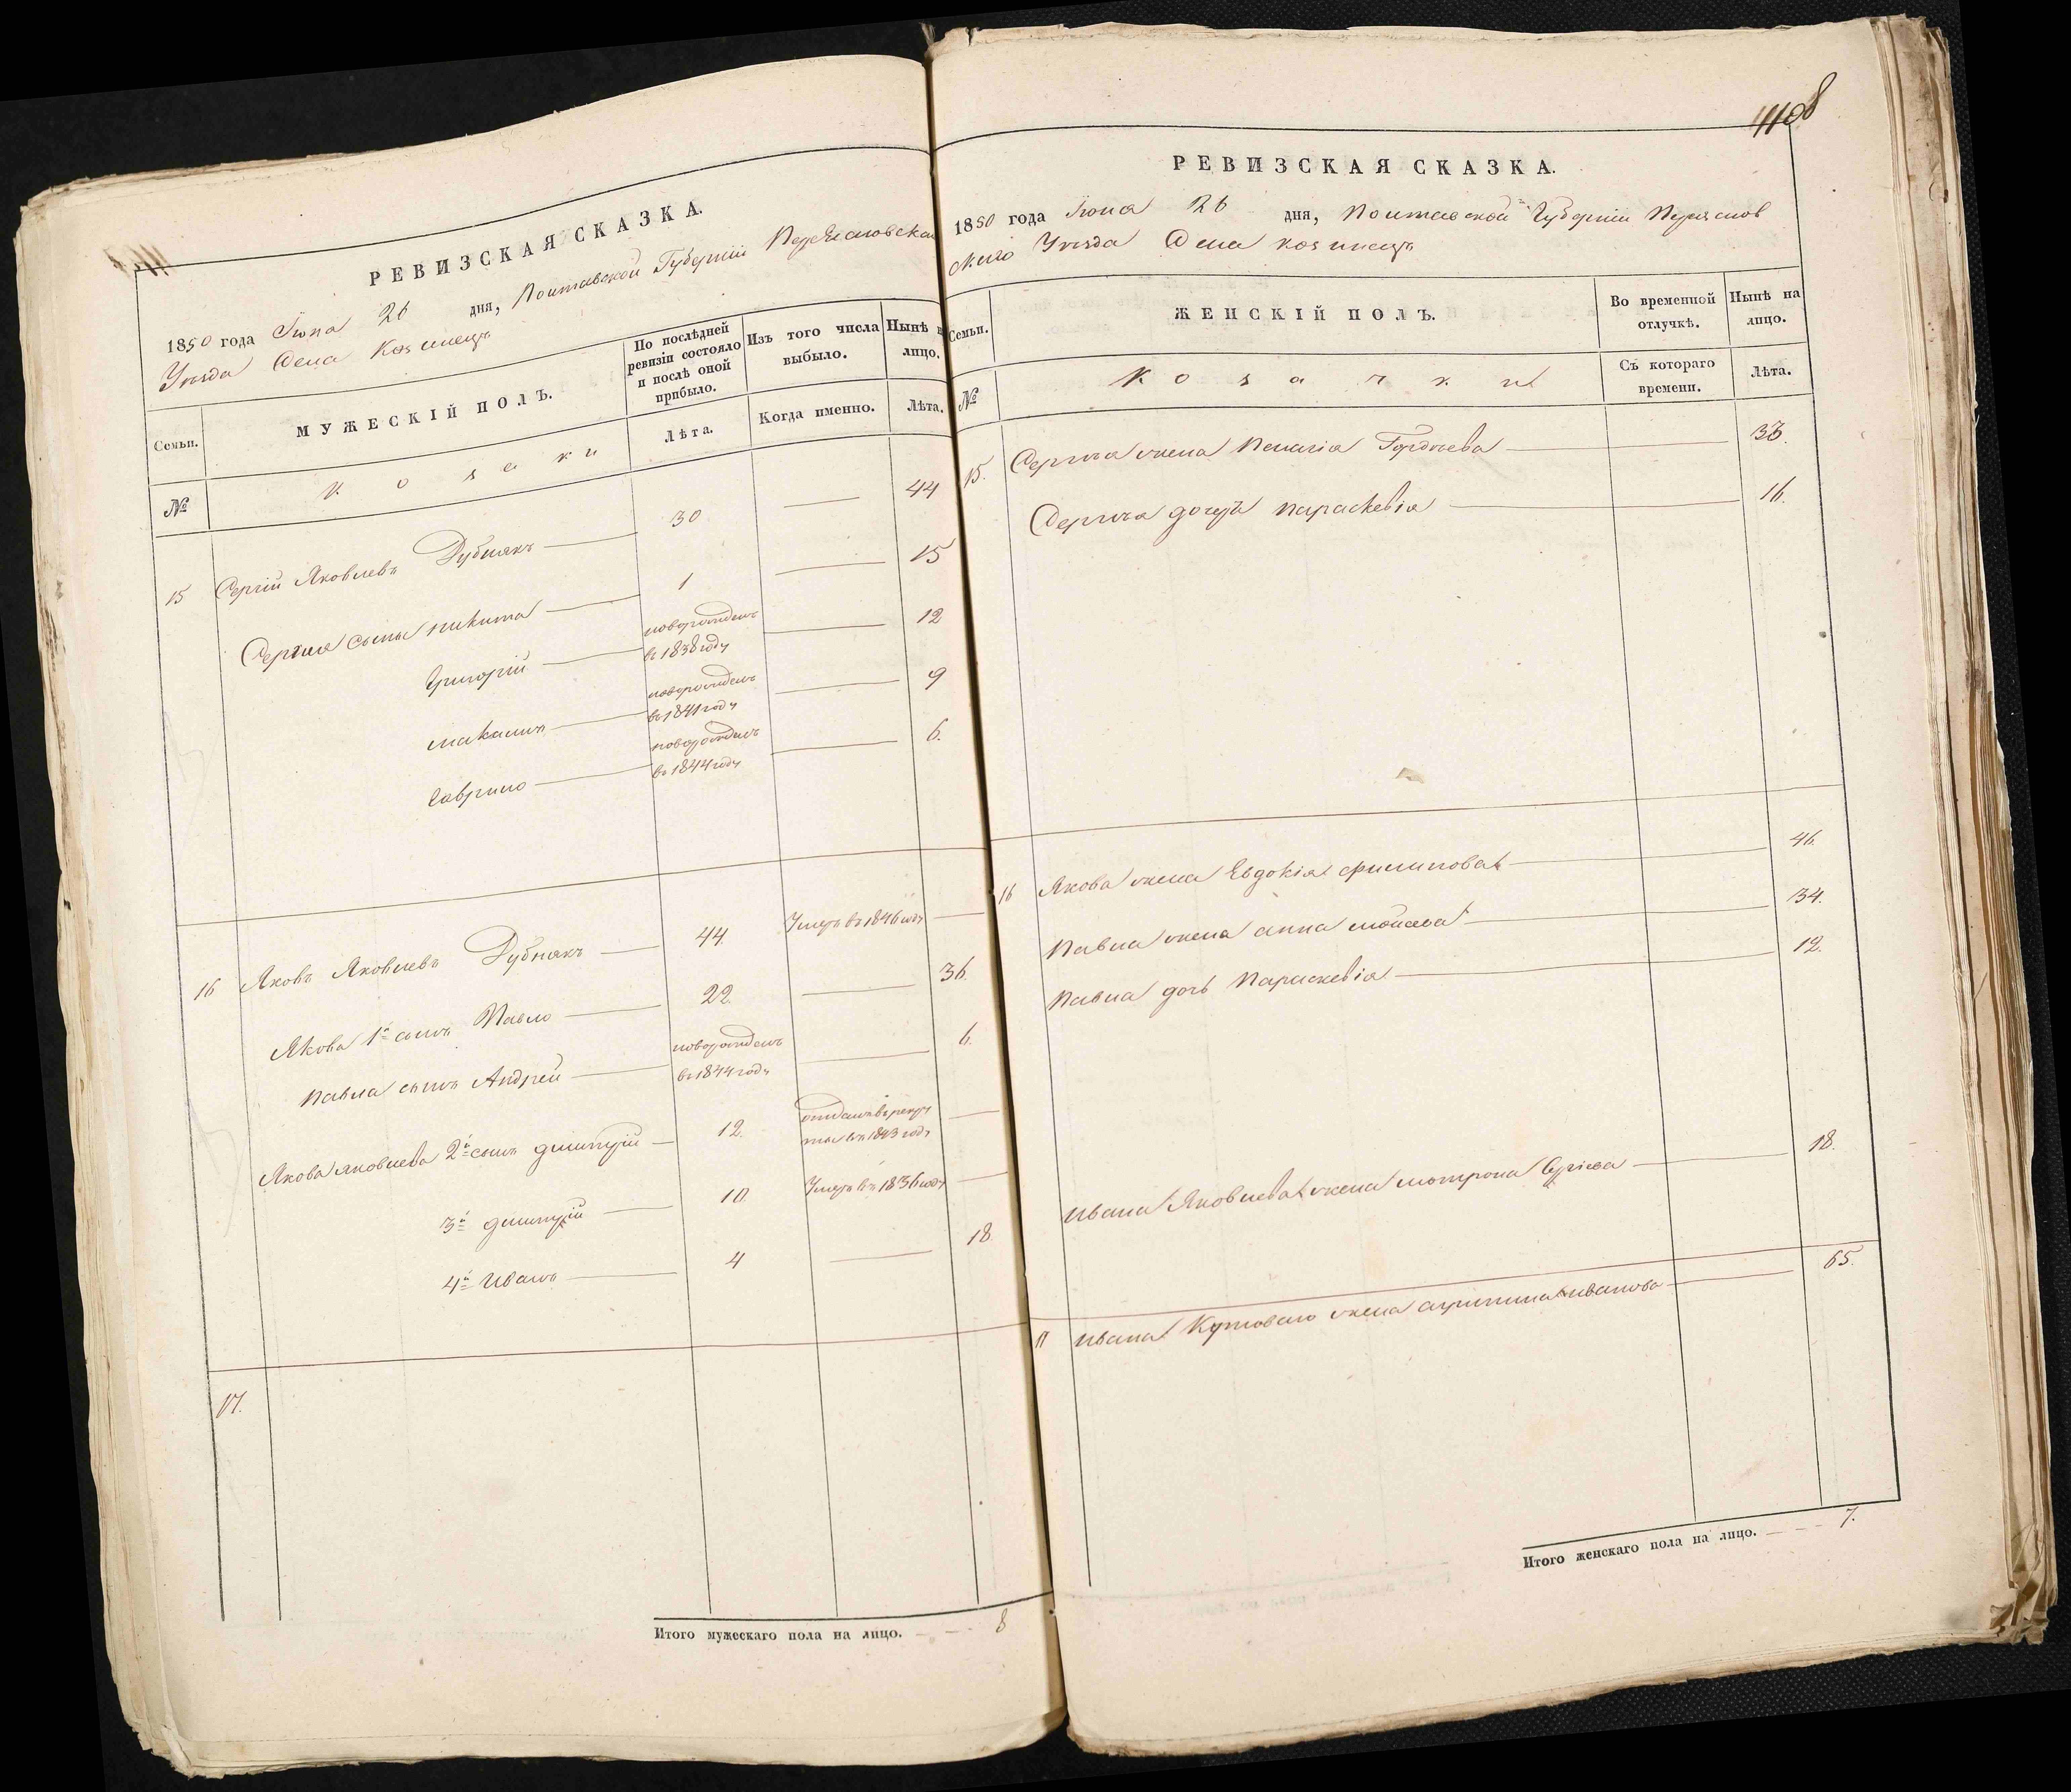 РЕВИЗСКАЯ СКАЗКА.
1850 года Іюня 26 дня, Полтавской Губерніи Переясловска
Уезда Села Козинецъ
Семьи.
МУЖЕСКІЙ ПОЛЪ.
По послѣдней ревизіи состояло и послѣ оной прибыло.
Изъ того числа выбыло.
Нынѣ н лицо.
№
Козаки
Лѣта.
Когда именно.
Лѣта.
15 Сергій Яковлевъ Дубнякъ 30 44
Сергия сыны Никита 1 15
Григорій новорожденъ въ 1838 году 12
Макаимъ новорожденъ въ 1841 году 9
Гаврило новорожденъ въ 1844 году 6.
16 Яковъ Яковлевъ Дубнякъ 44. Умеръ въ 1846 году
Якова 1й сынъ Павло 22. 36
Павла сынъ Андрей новорожденъ въ 1844 году 6.
Якова Яковлева 2й сынъ Дмитрій 12. отданъ въ рекруты въ 1843 году
3й Дмитрій 10. Умеръ въ 1836 году
4й Иванъ 4 18
17.
Итого мужескаго пола на лицо. 8
1108
РЕВИЗСКАЯ СКАЗКА.
1850 года Іюня 26 дня, Полтавской Губерніи Переяслов
скаго Уезда Села Козинецъ
Семьи.
ЖЕНСКІЙ ПОЛЪ.
Во временной отлучкѣ.
Нынѣ на лицо.
№
Козачки
Съ котораго времени.
Лѣта.
15. Сергия жена Пелагія Гордѣева 33.
Сергия дочерь Параскевія 16.
16 Якова жена Евдокія Филипова 46.
Павла жена Анна Мойсева 34.
Павла дочь Параскевія 12.
Ивана Яковлева жена Мотрона Сергіева 18.
17 Ивана Кутоваго жена Агрипина Иванова 65.
Итого женскаго пола на лицо. 7.